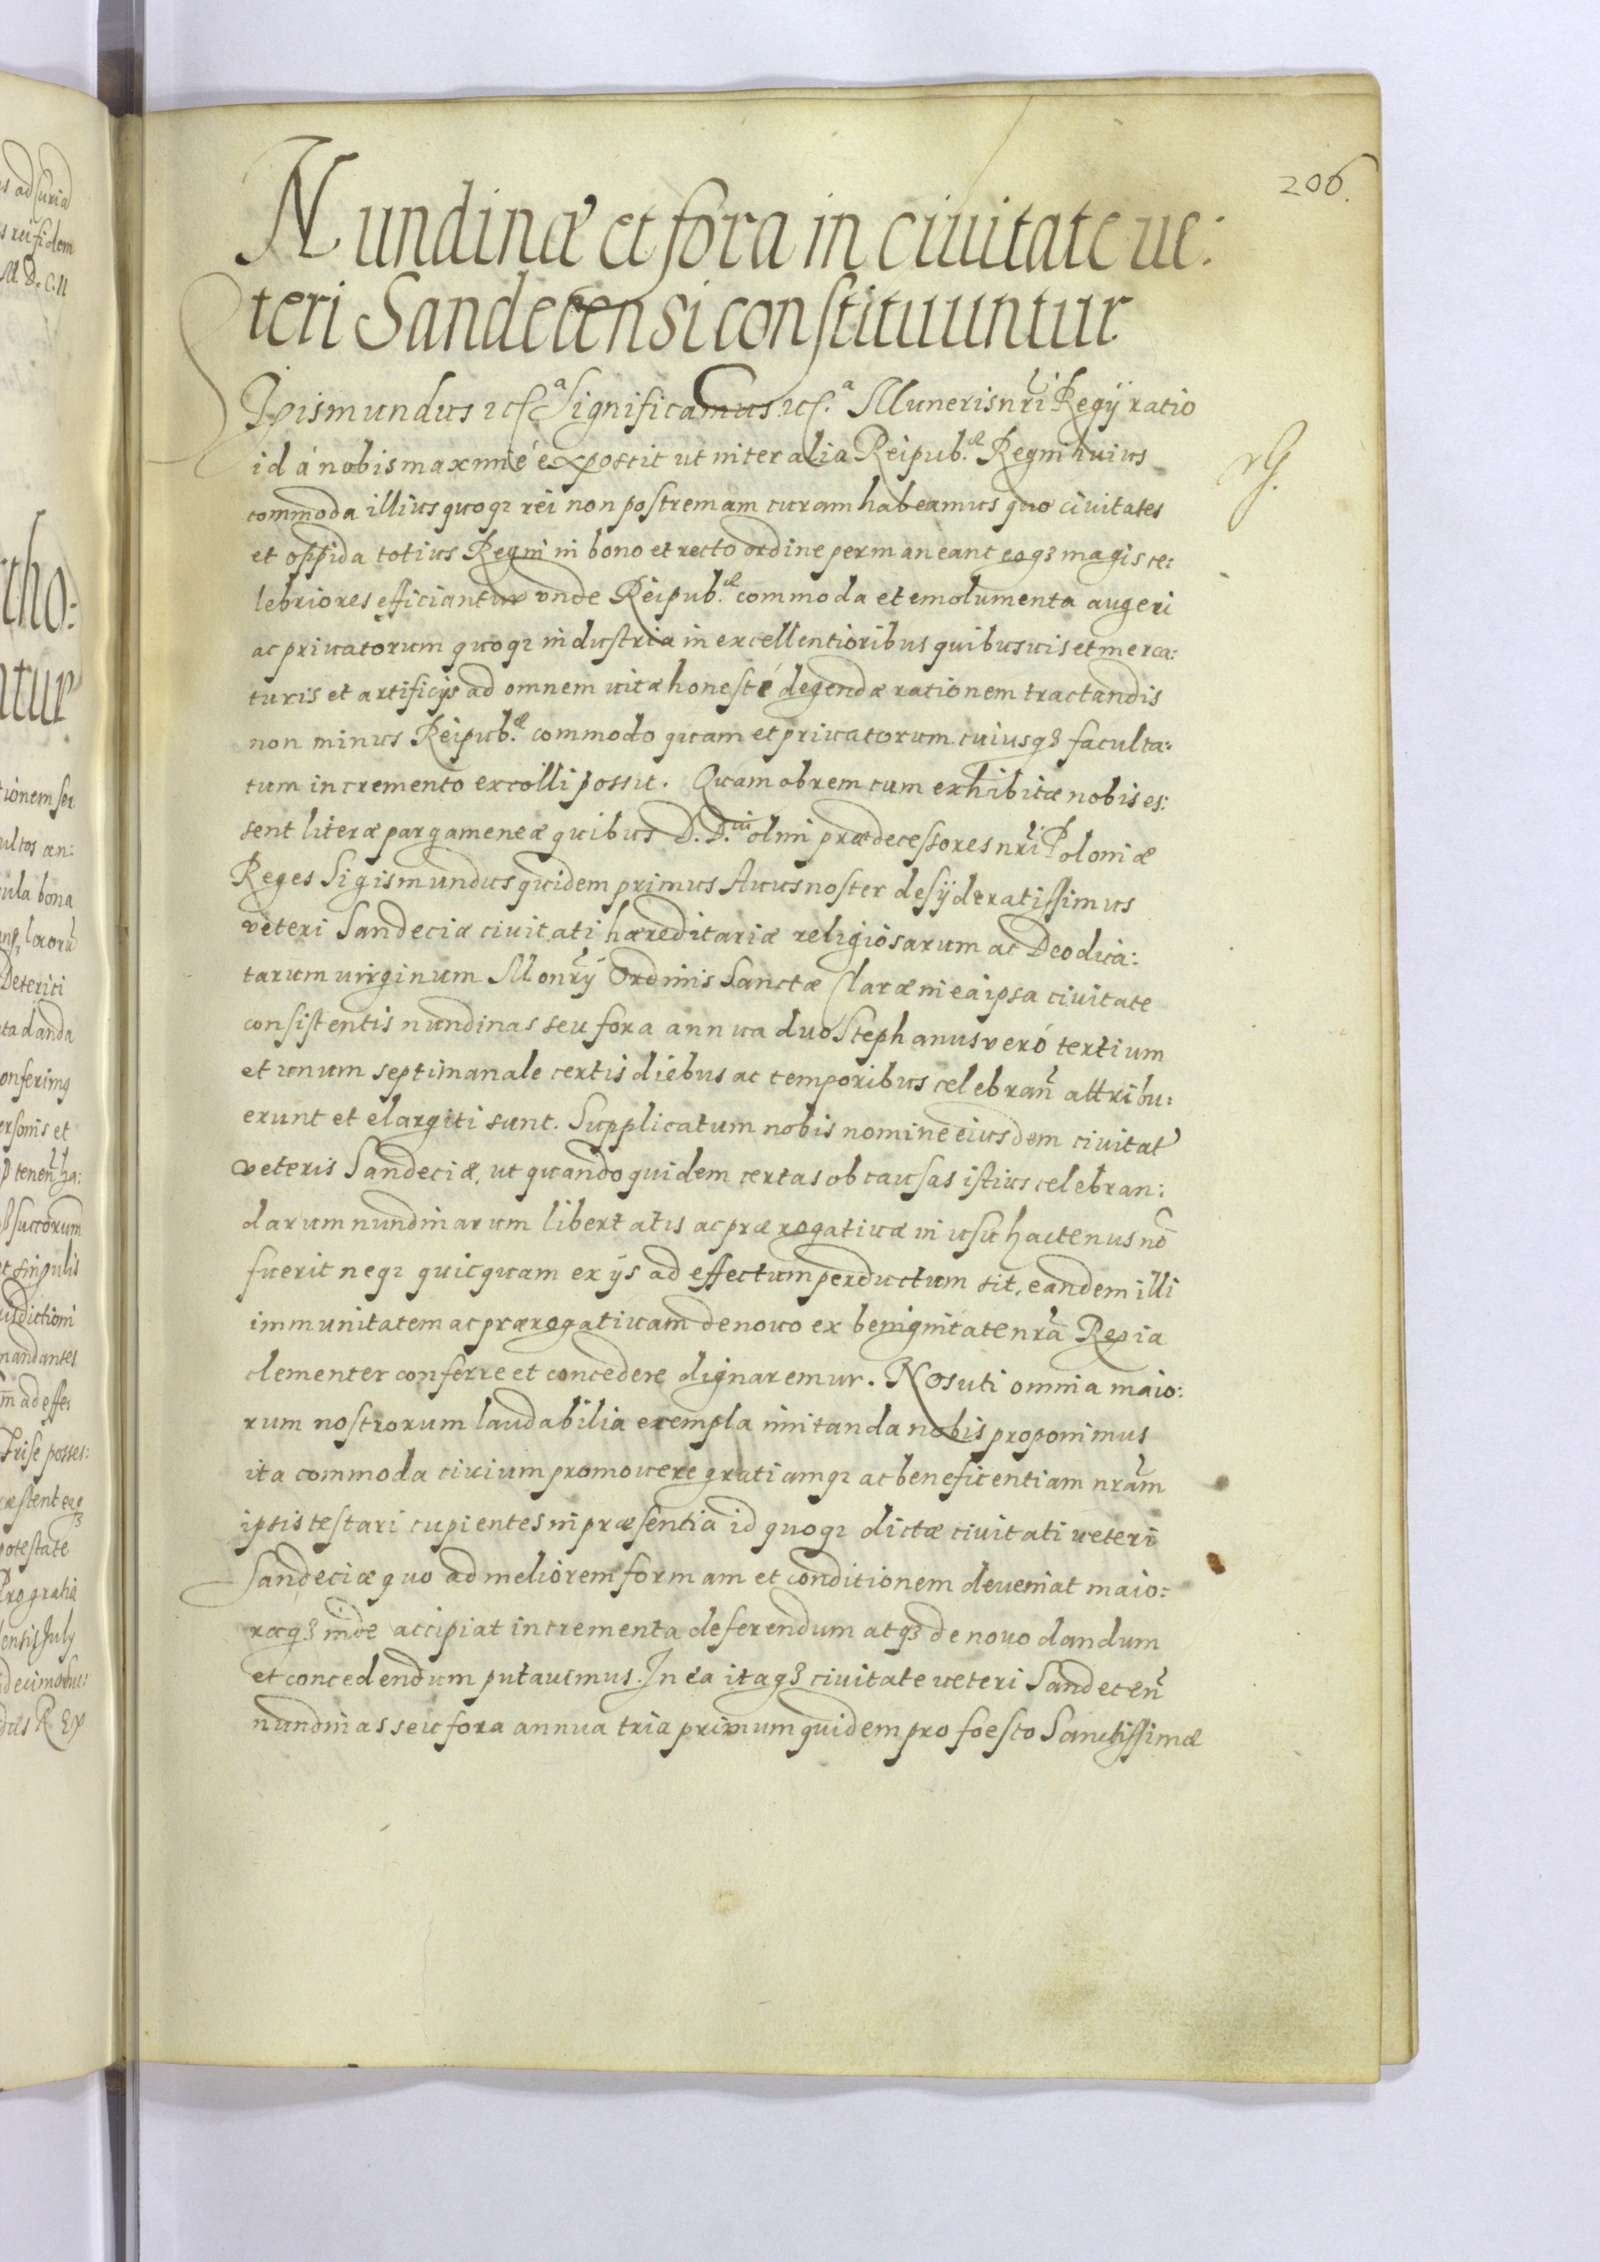 206.
Nundinæ et fora in ciuitate ue:
teri Sandecensi constituuntur
Sigismundus etc.ª Significamus etc.ª Muneris nr̃i Regij ratio
id á nobis maximé exposcit ut inter alia Reipub.æ Regni huius
commoda illius quoq3 rei non postremam curam habeamus quo ciuitates
et oppida totius Regni in bono et recto ordine permaneant eoq3 magis ce:
lebriores efficiantur vnde Reipub.æ commoda et emolumenta augeri
ac priuatorum quoq3 industria in excellentioribus quibusuis et merca:
turis et artificijs ad omnem uitæ honesté degendæ rationem tractandis
non minus Reipub.æ commodo quam et priuatorum cuiusq3 faculta:
tum incremento excolli possit. Quamobrem cum exhibitæ nobis es:
sent literæ pargameneæ quibus D. D. olim prædecessores nr̃i Poloniæ
Reges Sigismundus quidem primus Auus noster desÿderatissimus
veteri Sandeciæ ciuitati hæreditariæ religiosarum ac Deo dica:
tarum uirginum Monr̃ij Ordinis Sanctæ Claræ in ea ipsa ciuitate
consistentis nundinas seu fora annua duo Stephanus veró tertium
et unum septimanale certis diebus ac temporibus celebrañ attribu:
erunt et elargiti sunt. Supplicatum nobis nomine eiusdem ciuitat
veteris Sandeciæ, ut quandoquidem certas ob causas istius celebran:
darum nundinarum libertatis ac prærogatiuæ in usu hactenus nõ
fuerit neq3 quicquam ex ijs ad effectum perductum sit, eandem illi
immunitatem ac prærogatiuam denouo ex benignitate nr̃a Regia
clementer conferre et concedere dignaremur. Nos uti omnia maio:
rum nostrorum laudabilia exempla imitanda nobis proponimus
ita commoda ciuium promouere gratiamq3 ac beneficentiam nr̃am
ipsis testari cupientes in præsentia id quoq3 dictæ ciuitati ueteri
Sandeciæ quo ad meliorem formam et conditionem deueniat maio:
raq3 inde accipiat incrementa deferendum atq3 de nouo dandum
et concedendum putauimus. In ea itaq3 ciuitate ueteri Sandeceñ
nundinas seu fora annua tria primum quidem pro foesto Sanctissimæ